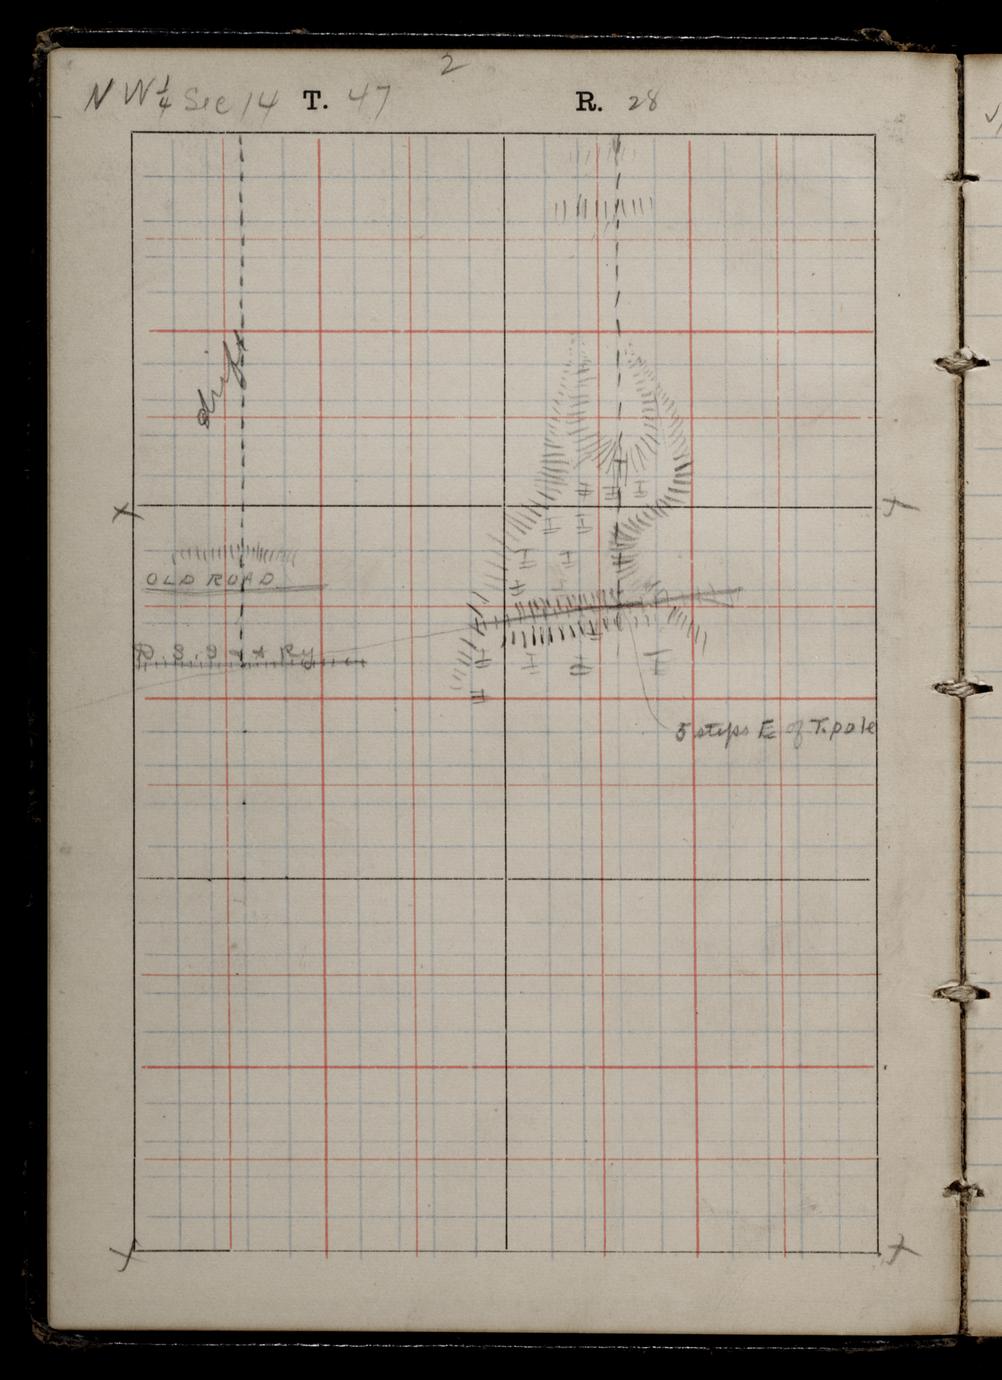 2
NW 1/4 Sec 14 T. 47 R. 28
drift
OLD ROAD
D.S.S. & A Ry
5 steps E of T. pole